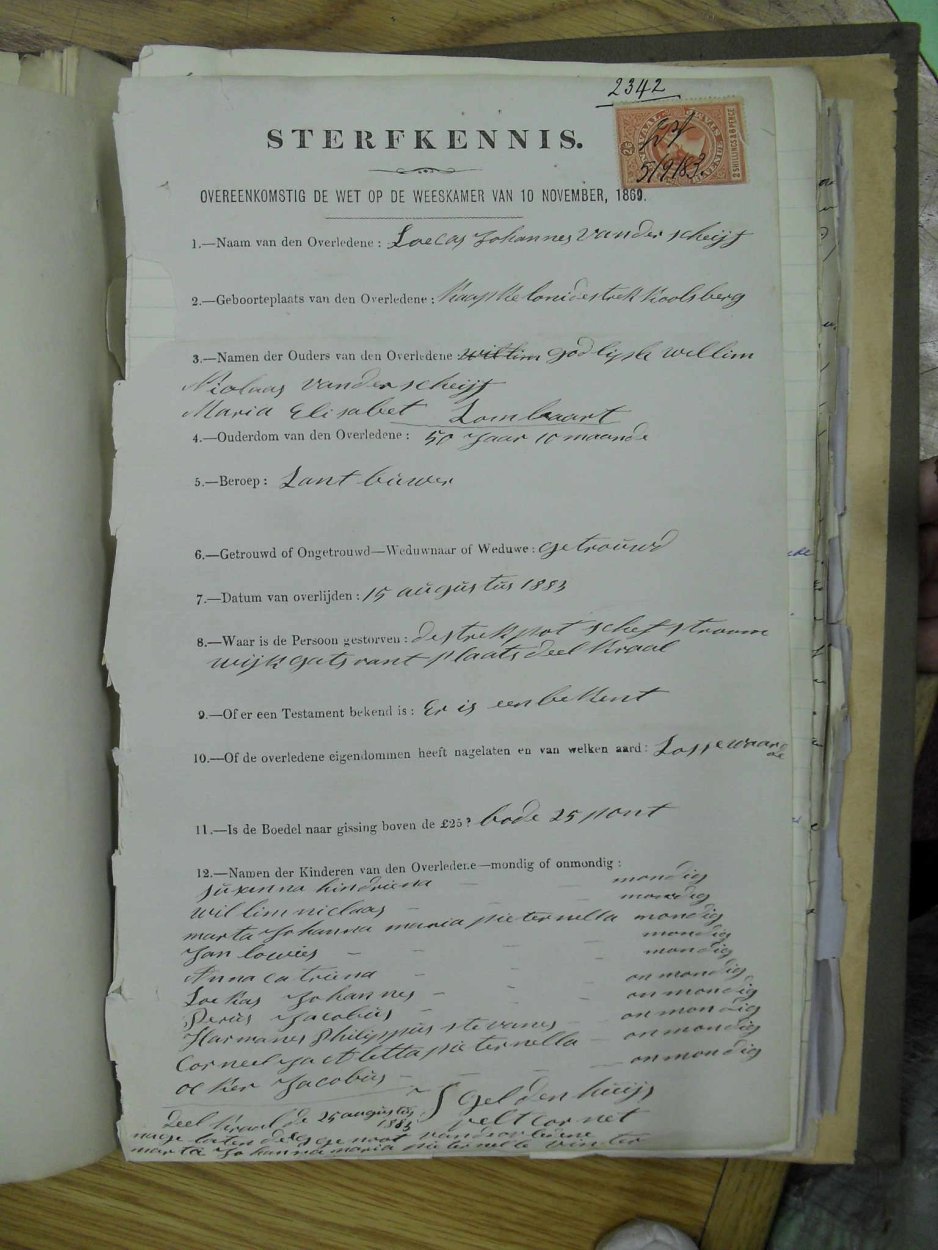 2342
STERFKENNIS.
2 SHILLINGS & 6 PENCE
5/9/83.
OVEREENKOMSTIG DE WET OP DE WEESKAMER VAN 10 NOVEMBER, 1869.
1.—Naam van den Overledene: Loecas Johannes van der scheijf
2.—Geboorteplaats van den Overledene: Kaapske lonidestrek Koolsberg
3.—Namen der Ouders van den Overledene willim godliple willim
Niclaas van der scheijf
Maria Elisabet Lombaart
4.—Ouderdom van den Overledene: 50 Jaar 10 maande
5.—Beroep: Lant buwer
6.—Getrouwd of Ongetrouwd—Weduwnaar of Weduwe: getrouwd
7.—Datum van overlijden: 15 augustus 1883
8.—Waar is de Persoon gestorven: destrek pot schef stroom
wijk gatsrant plaats deel Kraal
9.—Of er een Testament bekend is: Er is een be Kent
10.—Of de overledene eigendommen heeft nagelaten en van welken aard: Losse waarde
11.—Is de Boedel naar gissing boven de £25? bode 25 pont
12.—Namen der Kinderen van den Overledene—mondig of onmondig:
Suxanna hindriena - - - mondig
willim niclaas - - - mondig
marta Johanna maria pieternella mondig
Jan lowies - - - mondig
Anna ca triena - - - mondig
Loekas Johannes - - - onmondig
Jacobus - - - onmondig
Harmanes Philippus stevanes - onmondig
Corneelja aletta pieternella - onmondig
ocker Jacobus - - - onmondig
deel Kraal de 25 augustus 1883 J Gel den huijs
velt cor net
nage laten
marta Johanna maria pieternella